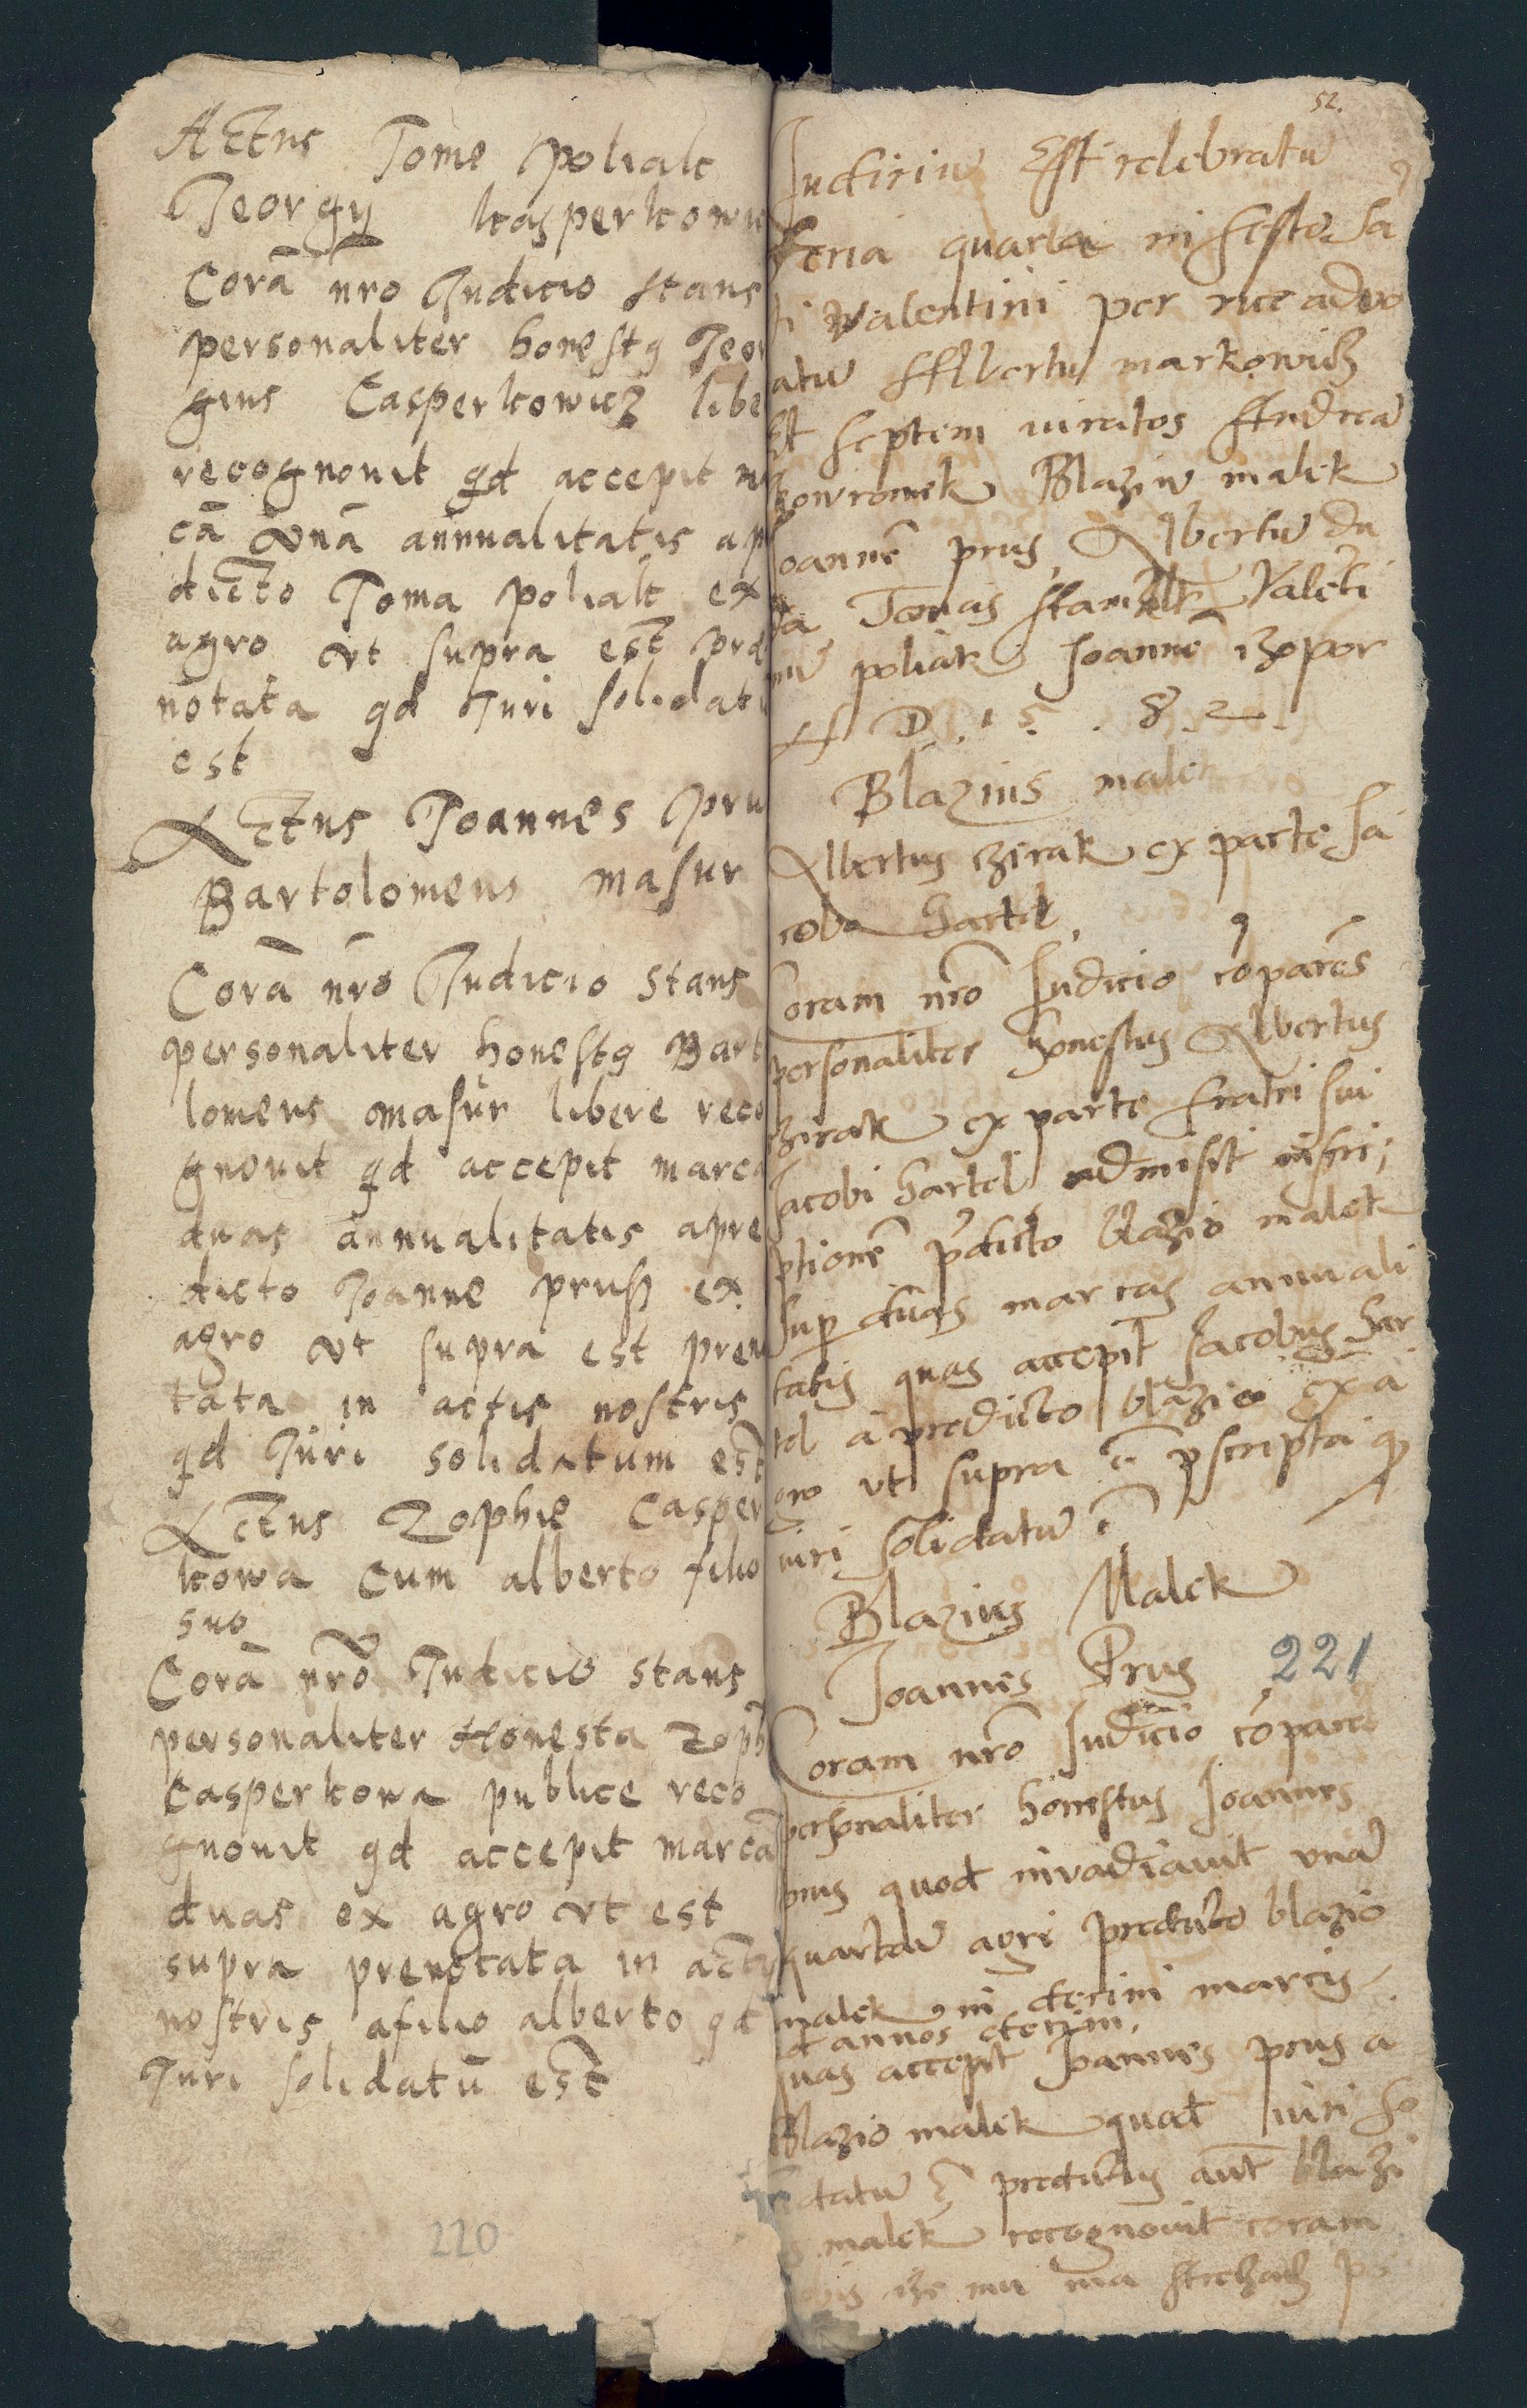 Actus Tome poliak
Georgy kasperkowi
Corā nr̄o Judicio stans
personaliter honestꝯ Geor
gius Casperkowicz libe
recognouit qd accepit m
cā vnā annualitatis ap
dicto Toma poliak ex
agro vt supra est pre
notata qd Juri solidatu
est
Actus Joannes pru
Bartolomeus masur
Corā nr̄o Judicio stans
personaliter honestꝯ Bart
lomeus masur libere reco
gnouit qd accepit marca
duas annualitatis apre
dicto Joanne prusz ex
agro vt supra est preno
tata in actis nostris
qd Juri solidatum est
Actus Zophie Casper
kowa Cum alberto filio
suo
Corā nr̄o Judicio stans
personaliter Honesta Zoph
Casperkowa publice reco
gnouit qd accepit marca
duas ex agro vt est
supra prenotata in actis
nostris afilio alberto qd
Juri solidatū est
220
52.
Judiciū Est celebratū
Feria quarta in festo Sā
ti Valentini per vice aduo
atū Albertū markowicz
Et septem iuratos Andreā
kowronek Blaziū malek
Joannē prus Albertū du
da Tomas stanek Valēti
nū poliak Joannē
A D 1 5 . 8 2 .
Blazius malek
Albertus zirak ex parte Ja
coba hartel
Coram nrō Judicio cōparēs
personaliter honestus Albertus
zirak ex parte fratri sui
Jacobi hartel admisit inscri;
ptionē pdicto blazio malek
sup duas marcas annuali
tatis quas accepit Jacobus har
tel a predicto blazio ex a
gro vt supra ē pscripta q
iuri solidatū ē
Blazius Malek
Joannes Prus
221
Coram nrō Judicio cōpare
personaliter honestus Joannes
prus quod invadiauit vnā
quartā agri predicto blazio
malek in decim marcis
d annos decim
quas accepit Joannes prus a
Blazio malek quod iuri so
datū ē predictus aut blazi
malek recognouit coram
ize mu ma po